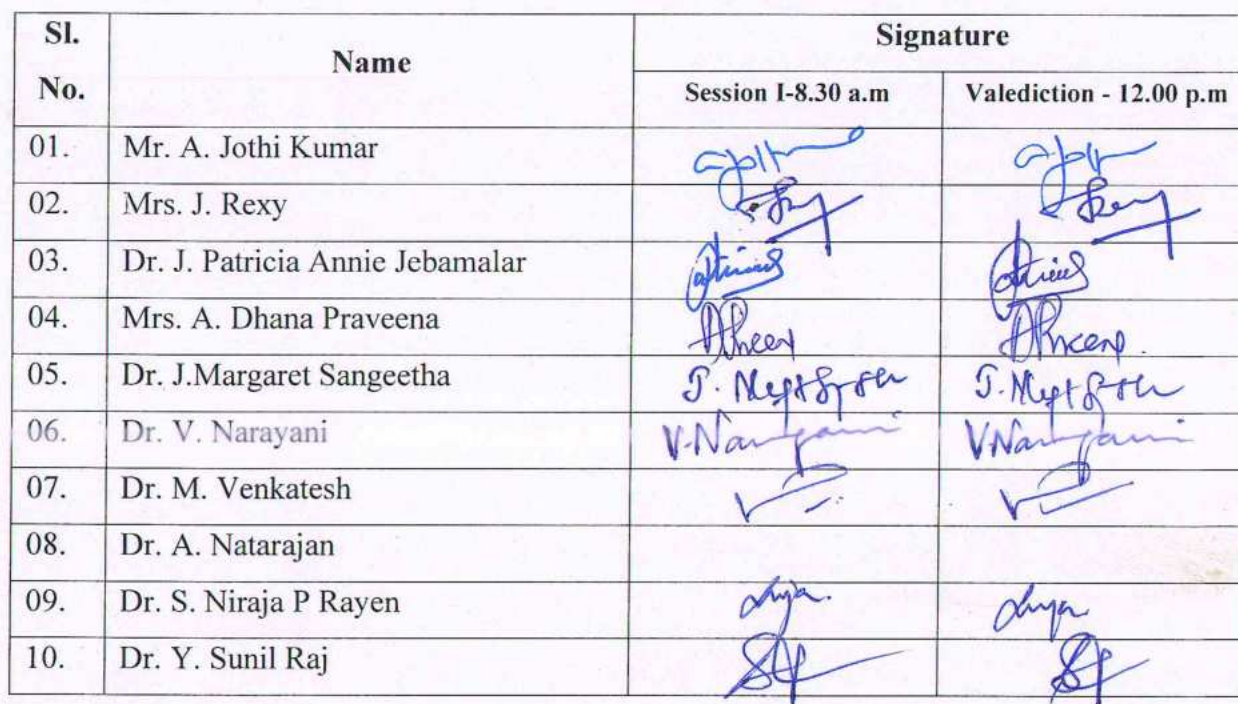 Sl. No. Name Signature
Session I-8.30 a.m Valediction - 12.00 p.m
01. Mr. A. Jothi Kumar
02. Mrs. J. Rexy
03. Dr. J. Patricia Annie Jebamalar
04. Mrs. A. Dhana Praveena
05. Dr. J.Margaret Sangeetha
06. Dr. V. Narayani V.Narayani V.Narayani
07. Dr. M. Venkatesh
08. Dr. A. Natarajan
09. Dr. S. Niraja P Rayen
10. Dr. Y. Sunil Raj